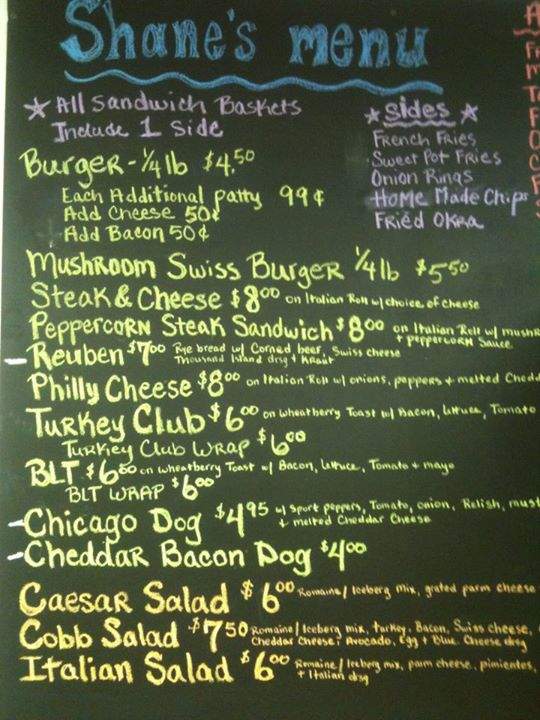 Shane's menu
★ All Sandwich Baskets
Include 1 Side
Burger - 1/4 lb $4.50
Each Additional patty 99¢
Add Cheese 50¢
Add Bacon 50¢
★ Sides ★
French Fries
Sweet Pot Fries
Onion Rings
Home Made Chips
Fried Okra
Mushroom Swiss Burger 1/4 lb $5.50
Steak & Cheese $8.00 on Italian Roll w/ choice of cheese
Peppercorn Steak Sandwich $8.00 on Italian Roll w/
+ peppercorn Sauce
Reuben $7.00 Rye bread w/ Corned beef, Swiss cheese
Thousand Island drsg + Kraut
Philly Cheese $8.00 on Italian Roll w/ onions, peppers + melted
Turkey Club $6.00 on wheatberry Toast w/ Bacon, Lettuce, Tomato
Turkey Club Wrap $6.00
BLT $6.00 on wheatberry Toast w/ Bacon, Lettuce, Tomato + mayo
BLT Wrap $6.00
Chicago Dog $4.95 w/ Sport peppers, Tomato, onion, Relish,
+ melted Cheddar Cheese
Cheddar Bacon Dog $4.00
Caesar Salad $6.00 Romaine/Iceberg mix, grated parm cheese
Cobb Salad $7.50 Romaine/Iceberg mix, turkey, Bacon, Swiss cheese,
Cheddar Cheese, Avocado, Egg + Blue Cheese drsg
Italian Salad $6.00 Romaine/Iceberg mix, parm cheese, pimientos,
+ Italian drsg